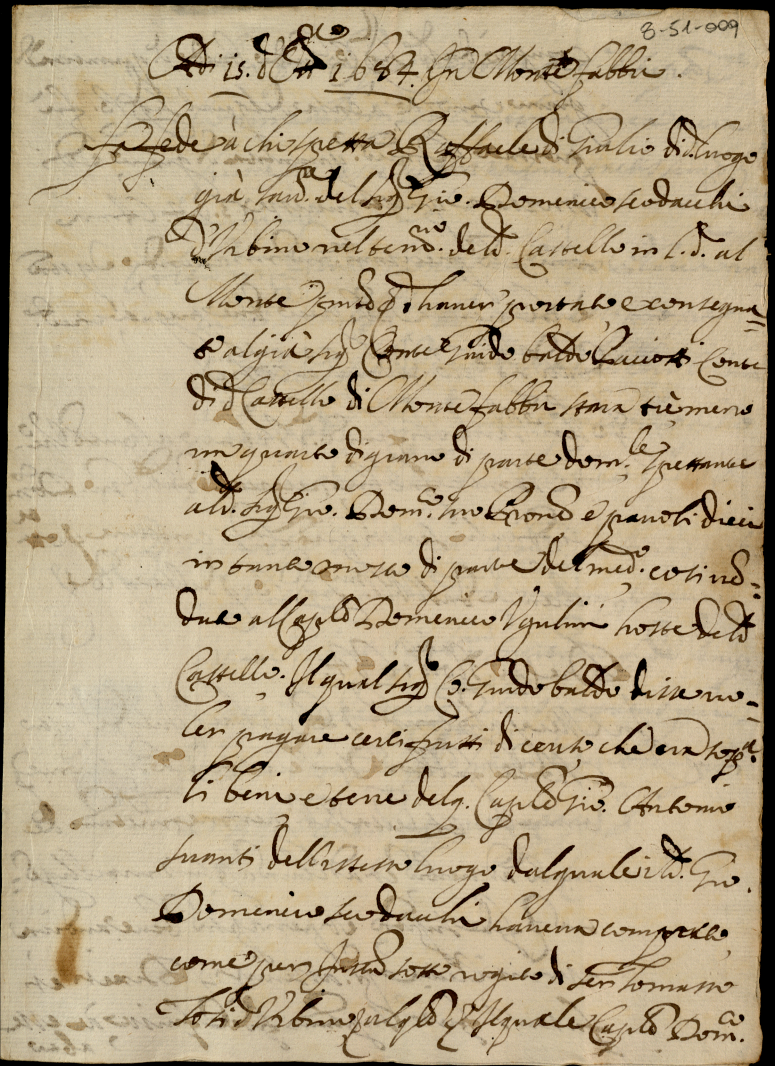 8-51-009
Adi 15. d'Ott.re 1684. In Monte fabbri.
Fa fede à chi spetta Raffaele di Giulio di d. luogo
già lau.re del Sig.r Gio. Domenico scodacchi
d'Urbino nel terr.no del d. Castello in l. d. al
Monte haver portato e consegna=
to al già Sig.r Conte Guido baldo Paciotti Conte
di d. Castello di Monte fabbri stara trè meno
un quarto di grano di parte dom.le spettante
al d. Sig.r Gio. Dom.co suo Pron̄e e pavoli dieci
in tanta di parte del med.o così
al Cap.o Domenico Ugulini hoste del d.
Castello. Il qual Sig.r Co. Guido baldo disse vo=
ler pagare certi frutti di censo che era sop.a
li beni e terre del q. Cap.o Gio. Antonio
suanti dell istesso luogo dal quale il d. Gio.
Domenico scodacchi haveva comprato
come per Instr.o sotto rogito di ser Tomasso
Tosi d'Urbino Il quale Cap.o Dom.co